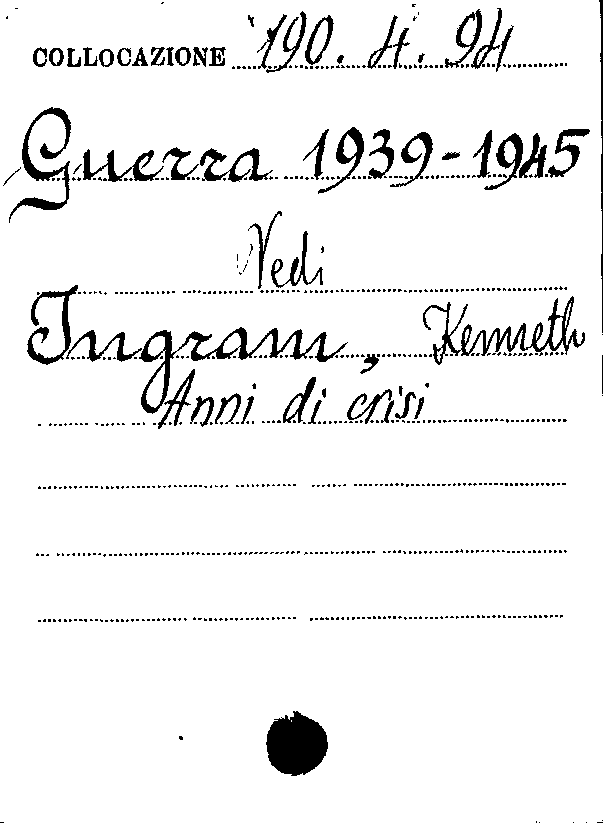 COLLOCAZIONE 190. 4. 94
Guerra 1939-1945
Vedi
Ingram, Kenneth
Anni di crisi